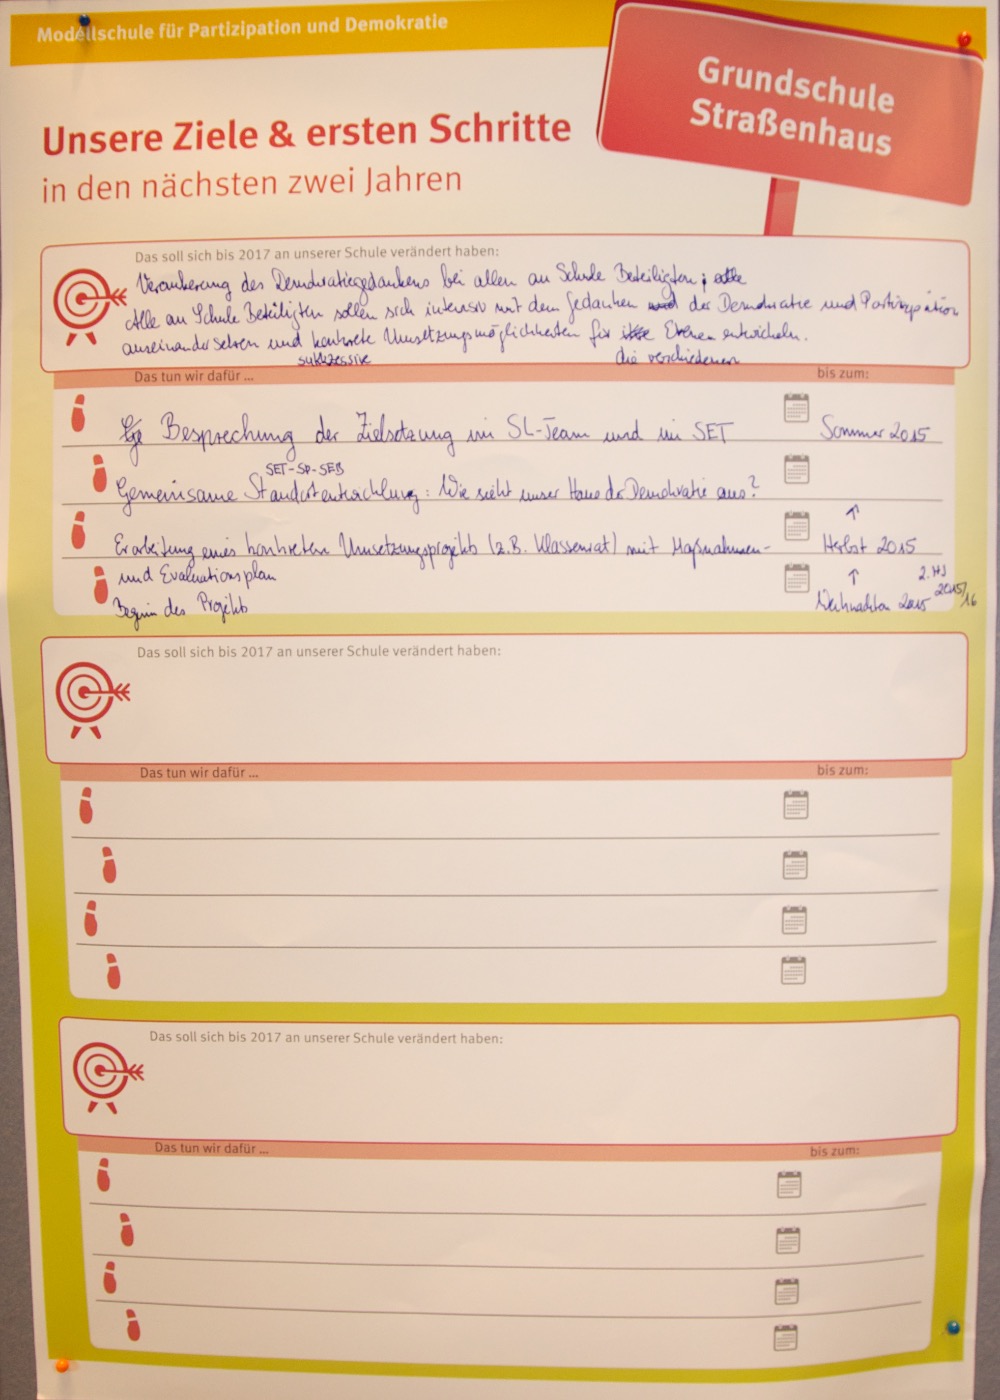 Modellschule für Partizipation und Demokratie
Grundschule
Straßenhaus
Unsere Ziele & ersten Schritte
in den nächsten zwei Jahren
Das soll sich bis 2017 an unserer Schule verändert haben:
Verankerung des Demokratiegedankens bei allen an Schule Beteiligten;
Alle an Schule Beteiligten sollen sich intensiv mit dem Gedanken der Demokratie und Partizipation
auseinandersetzen und konkrete Umsetzungsmöglichkeiten für Ebenen entwickeln.
sukzessive die verschiedenen
Das tun wir dafür ... bis zum:
Besprechung der Zielsetzung im SL-Team und im SET Sommer 2015
SET-SP-SEB
Gemeinsame Standortentwicklung: Wie sieht unser Haus der Demokratie aus?
↑
Erarbeitung eines konkreten Umsetzungsprojekts (z.B. Klassenrat) mit Maßnahmen- Herbst 2015
und Evaluationsplan ↑ 2. HJ
2015/16
Beginn des Projekts Weihnachten 2015
Das soll sich bis 2017 an unserer Schule verändert haben:
Das tun wir dafür ... bis zum:
Das soll sich bis 2017 an unserer Schule verändert haben:
Das tun wir dafür ... bis zum: